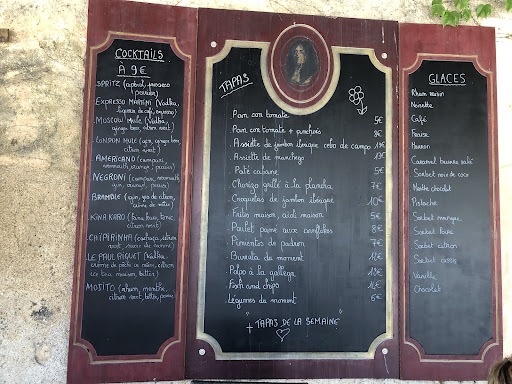 COCKTAILS
À 9€
SPRITZ (apérol, prosecco
perrier)
EXPRESSO MARTINI (Vodka,
liqueur de café, expresso)
MOSCOW MULE (Vodka,
ginger beer, citron vert)
LONDON MULE (gin, ginger beer,
citron vert)
AMERICANO (campari,
vermouth, orange, perrier)
NEGRONI (campari, vermouth
gin, orange)
BRAMBLE (gin, jus de citron,
crème de mûre)
KINA KARO (tonic,
citron vert)
CAÏPIRINHA (cachaça, citron
vert, sucre de canne)
LE PAUL RIQUET (Vodka,
crème de pêche, citron
ice tea maison)
MOJITO (rhum, menthe,
citron vert, perrier)
TAPAS
Pan con tomate 5€
Pan con tomate + anchois 8€
Assiette de jambon ibérique cebo de campo 19€
Assiette de manchego 13€
Pâté catalane 5€
Chorizo grillé à la plancha 7€
Croquetas de jambon ibérique 10€
Frites maison, aïoli maison 5€
Poulet pané aux cornflakes 8€
Pimientos de padron 7€
Burrata du moment 11€
Pulpo à la gallega 13€
Fish and chips 14€
Légumes du moment 6€
+ "TAPAS DE LA SEMAINE"
GLACES
Rhum raisin
Noisette
Café
Fraise
Marron
Caramel beurre salé
Sorbet noix de coco
Menthe chocolat
Pistache
Sorbet mangue
Sorbet poire
Sorbet citron
Sorbet cassis
Vanille
Chocolat